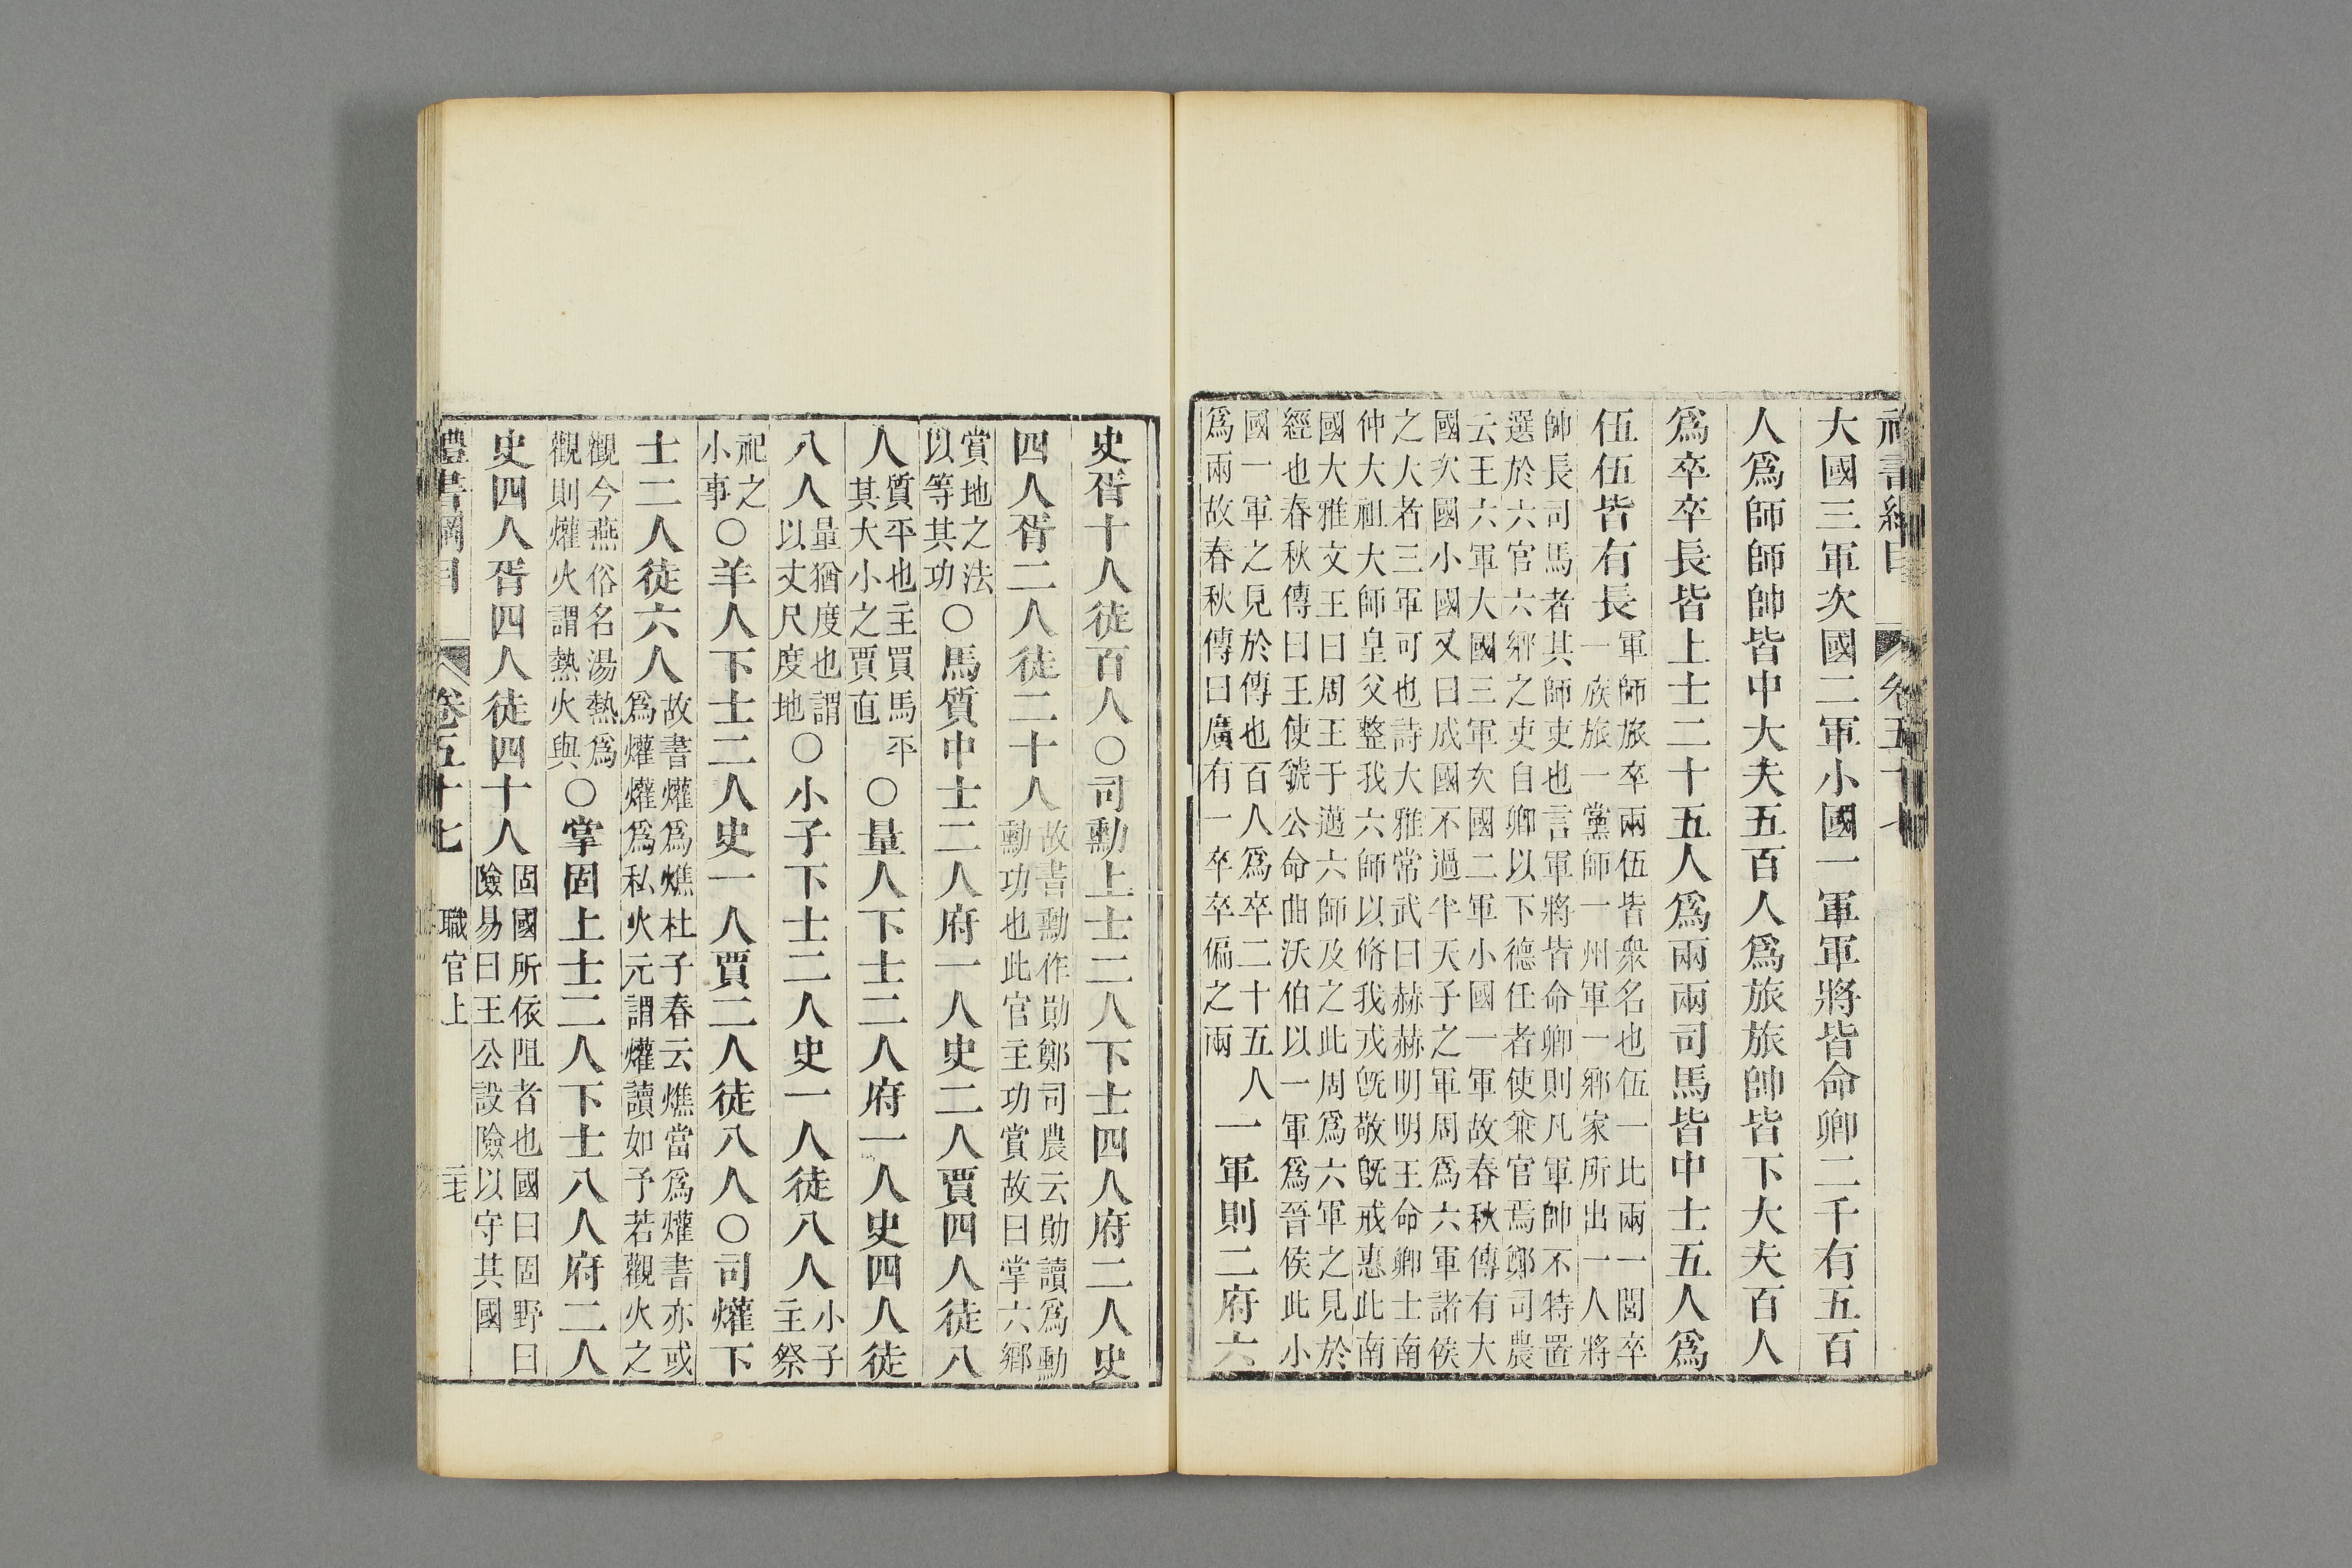 禮書綱目　卷五十七
大國三軍次國二軍小國一軍軍將皆命卿二千有五百
人爲師師帥皆中大夫五百人爲旅旅帥皆下大夫百人
爲卒卒長皆上士二十五人爲兩兩司馬皆中士五人爲
伍伍皆有長
軍師旅卒兩伍皆衆名也伍一比兩一閭卒
一族旅一黨師一州軍一鄉家所出一人將
帥長司馬者其師吏也言軍將皆命卿則凡軍帥不特置
選於六官六鄉之吏自卿以下德任者使兼官焉鄭司農
云王六軍大國三軍次國二軍小國一軍故春秋傳有大
國次國小國又曰成國不過半天子之軍周爲六軍諸侯
之大者三軍可也詩大雅常武曰赫赫明明王命卿士南
仲大祖大師皇父整我六師以脩我戎旣敬旣戒惠此南
國大雅文王曰周王于邁六師及之此周爲六軍之見於
經也春秋傳曰王使虢公命曲沃伯以一軍爲晉侯此小
國一軍之見於傳也百人爲卒二十五人
爲兩故春秋傳曰廣有一卒卒偏之兩
一軍則二府六
史胥十人徒百人○司勳上士二人下士四人府二人史
四人胥二人徒二十人
故書勳作勛鄭司農云勛讀爲勳
勳功也此官主功賞故曰掌六鄉
賞地之法
以等其功
○馬質中士二人府一人史二人賈四人徒八
人
質平也主買馬平
其大小之賈直
○量人下士二人府一人史四人徒
八人
量猶度也謂
以丈尺度地
○小子下士二人史一人徒八人
小子
主祭
祀之
小事
○羊人下士二人史一人賈二人徒八人○司爟下
士二人徒六人
故書爟爲燋杜子春云燋當爲爟書亦或
爲爟爟爲私火元謂爟讀如予若觀火之
觀今燕俗名湯熱爲
觀則爟火謂熱火與
○掌固上士二人下士八人府二人
史四人胥四人徒四十人
固國所依阻者也國曰固野曰
險易曰王公設險以守其國
禮書綱目　卷五十七　職官上